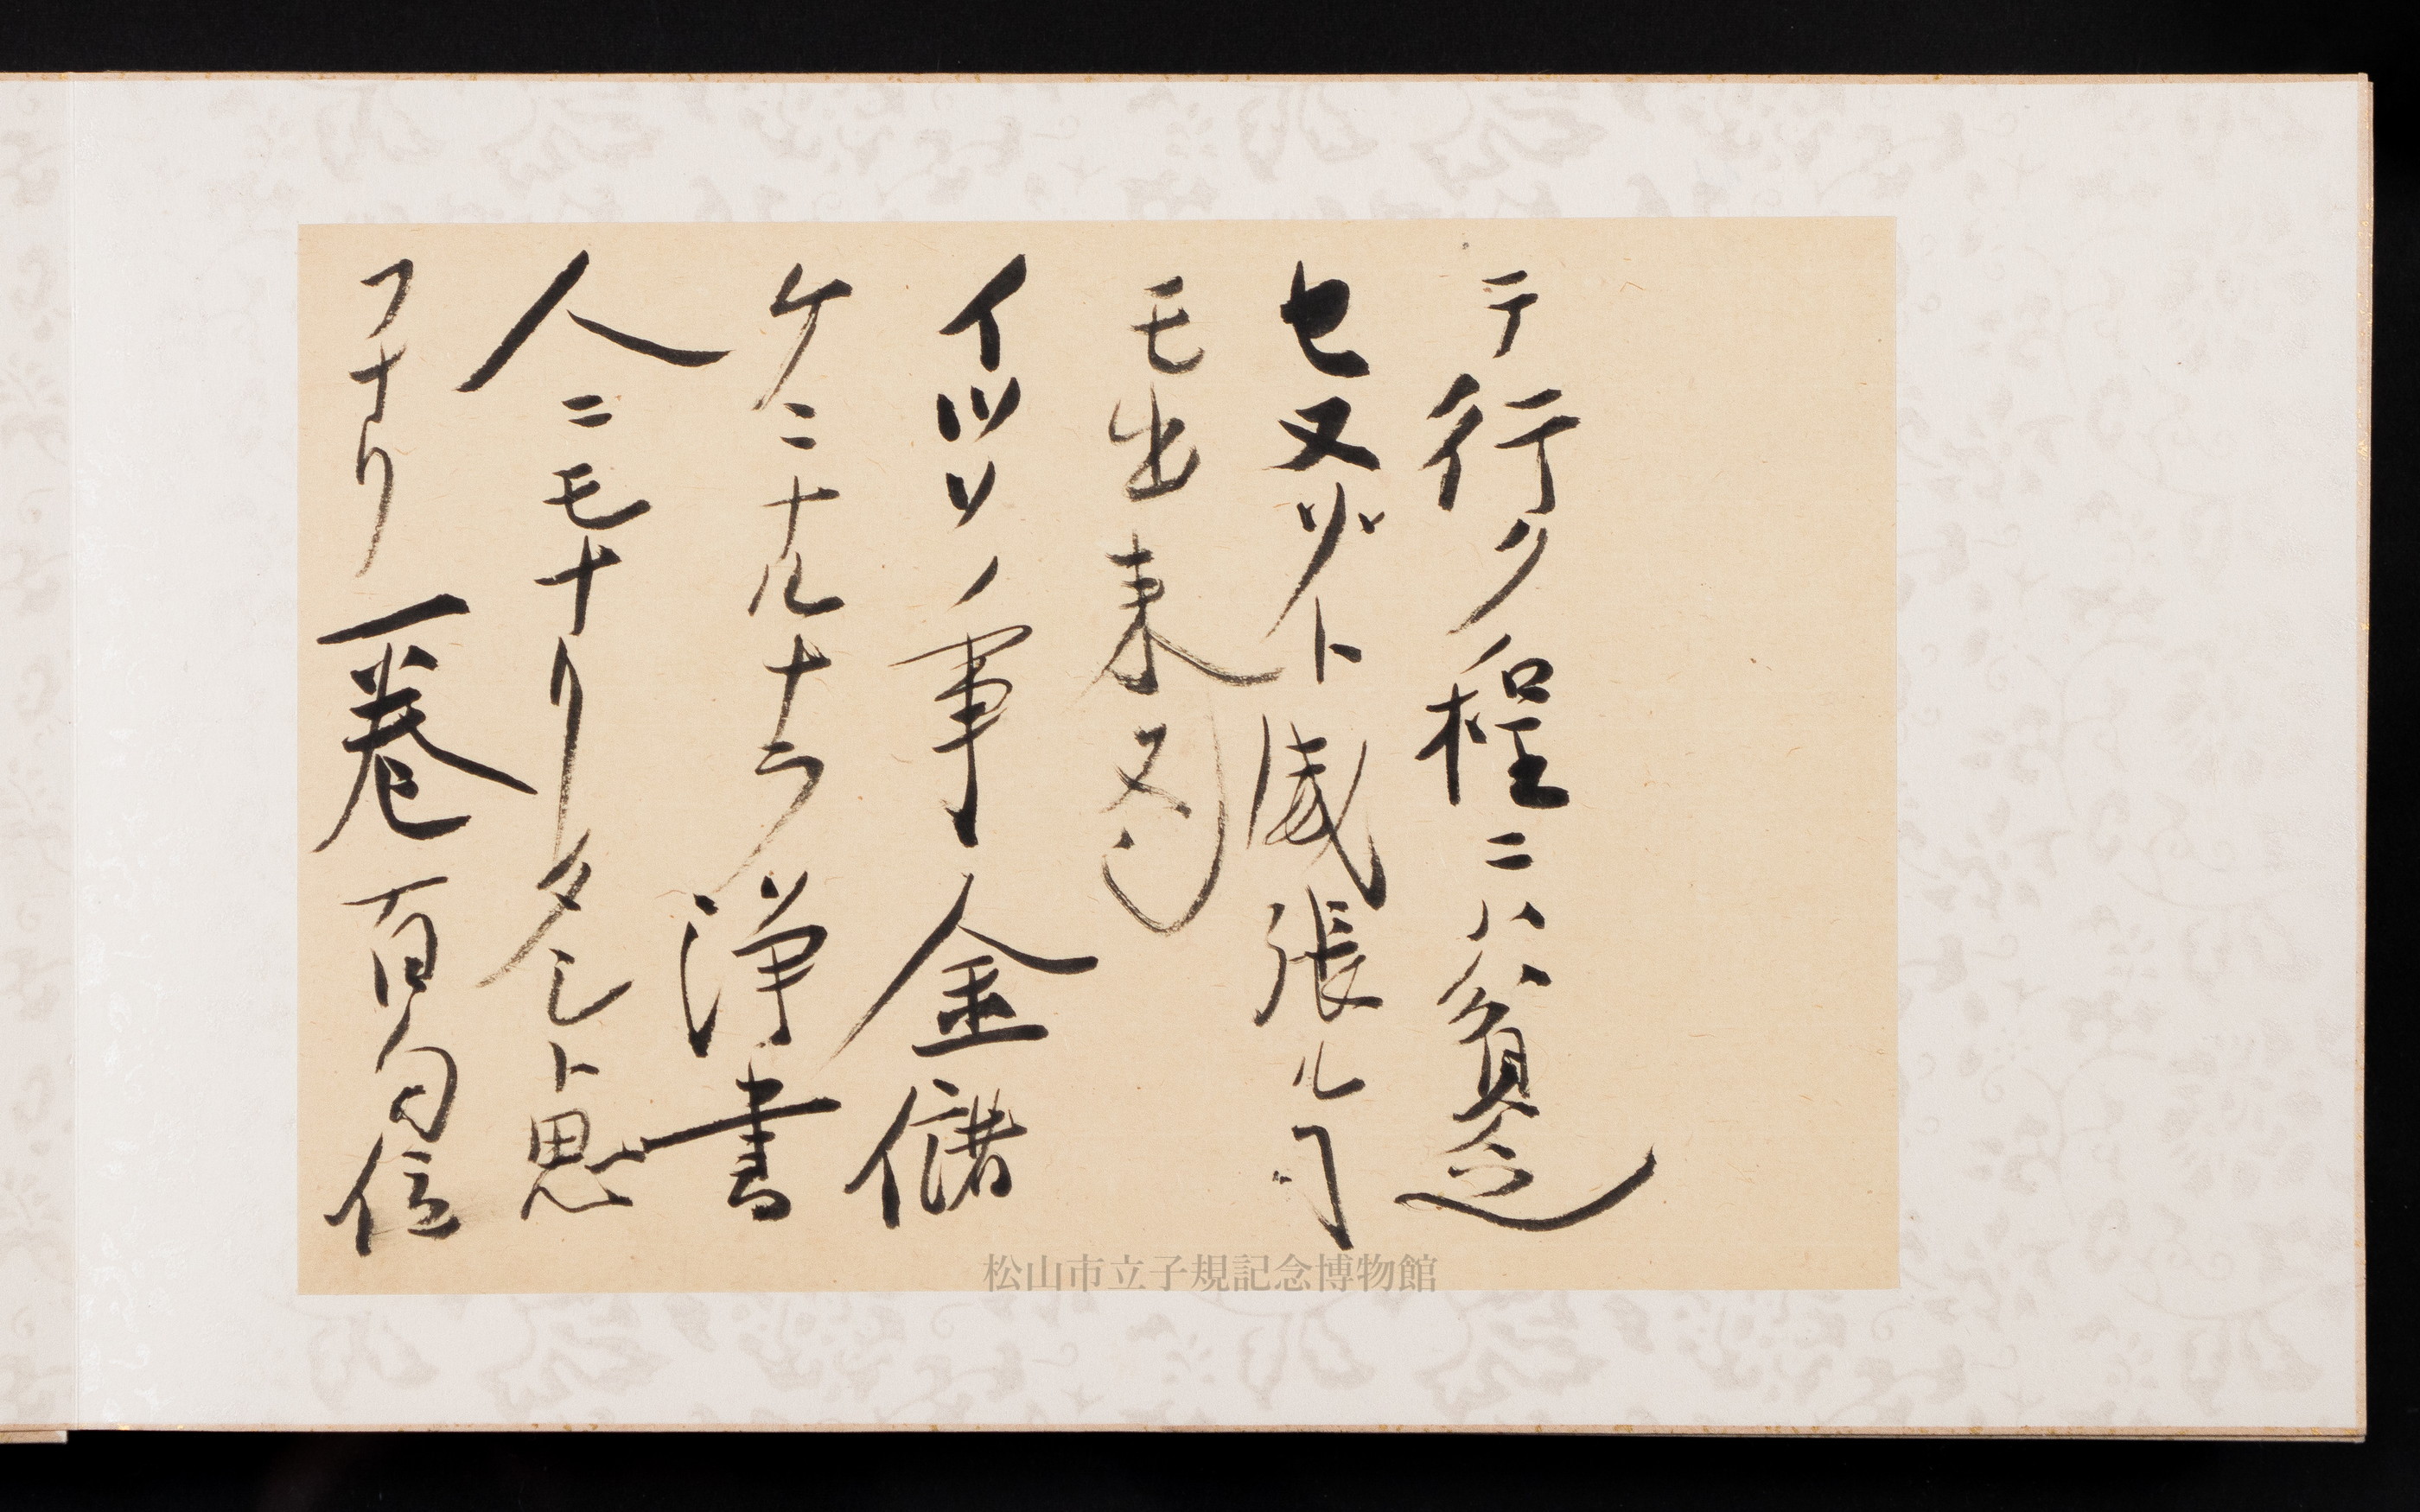 テ行ク程ニハ貧乏
セヌゾト威張ルヿ
モ出来ヌ
イツソノ事金儲
ケニナルナラ浄書
人ニモナリタシト思
フナリ一巻百句位
松山市立子規記念博物館